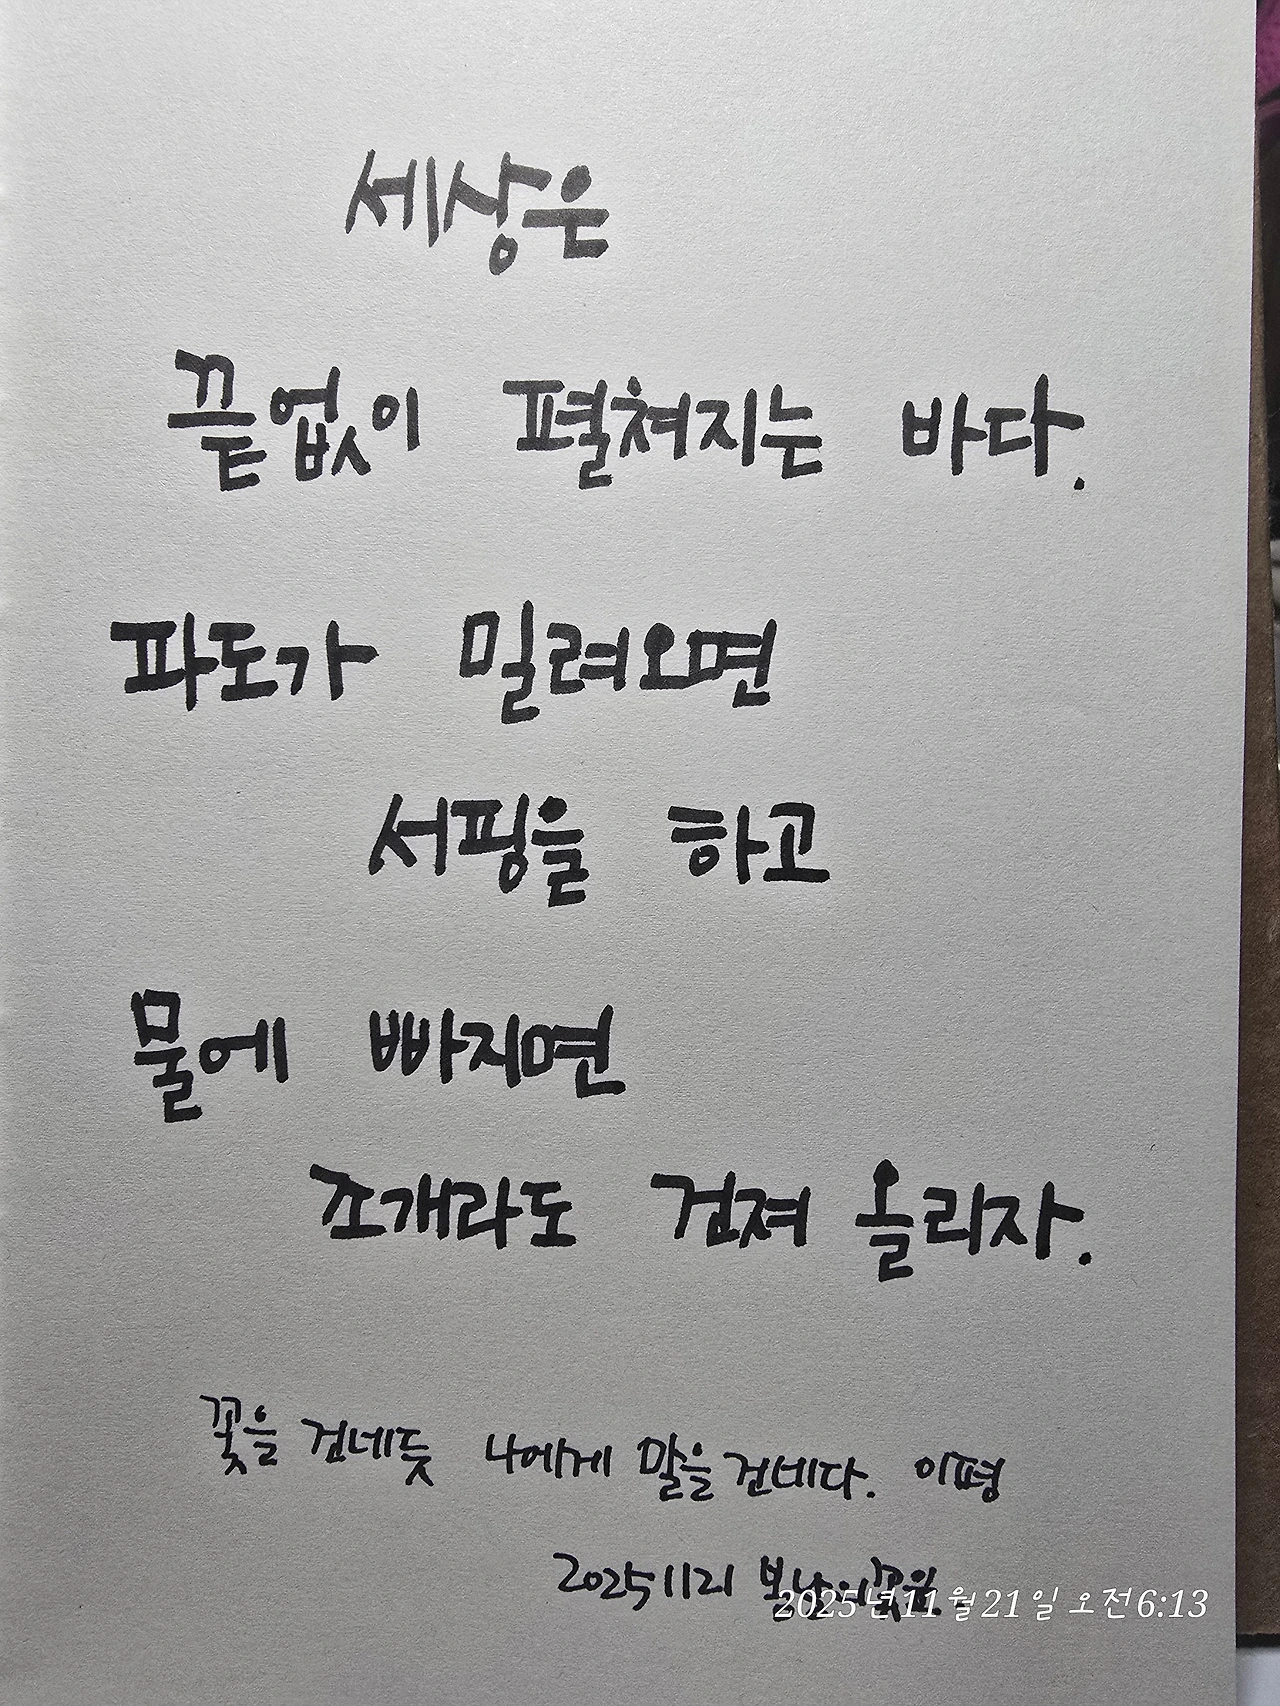 세상은
끝없이 펼쳐지는 바다.
파도가 밀려오면
서핑을 하고
물에 빠지면
조개라도 건져 올리자.
꽃을 건네듯 나에게 말을 건네다. 이평
20251121
2025년11월21일 오전6:13